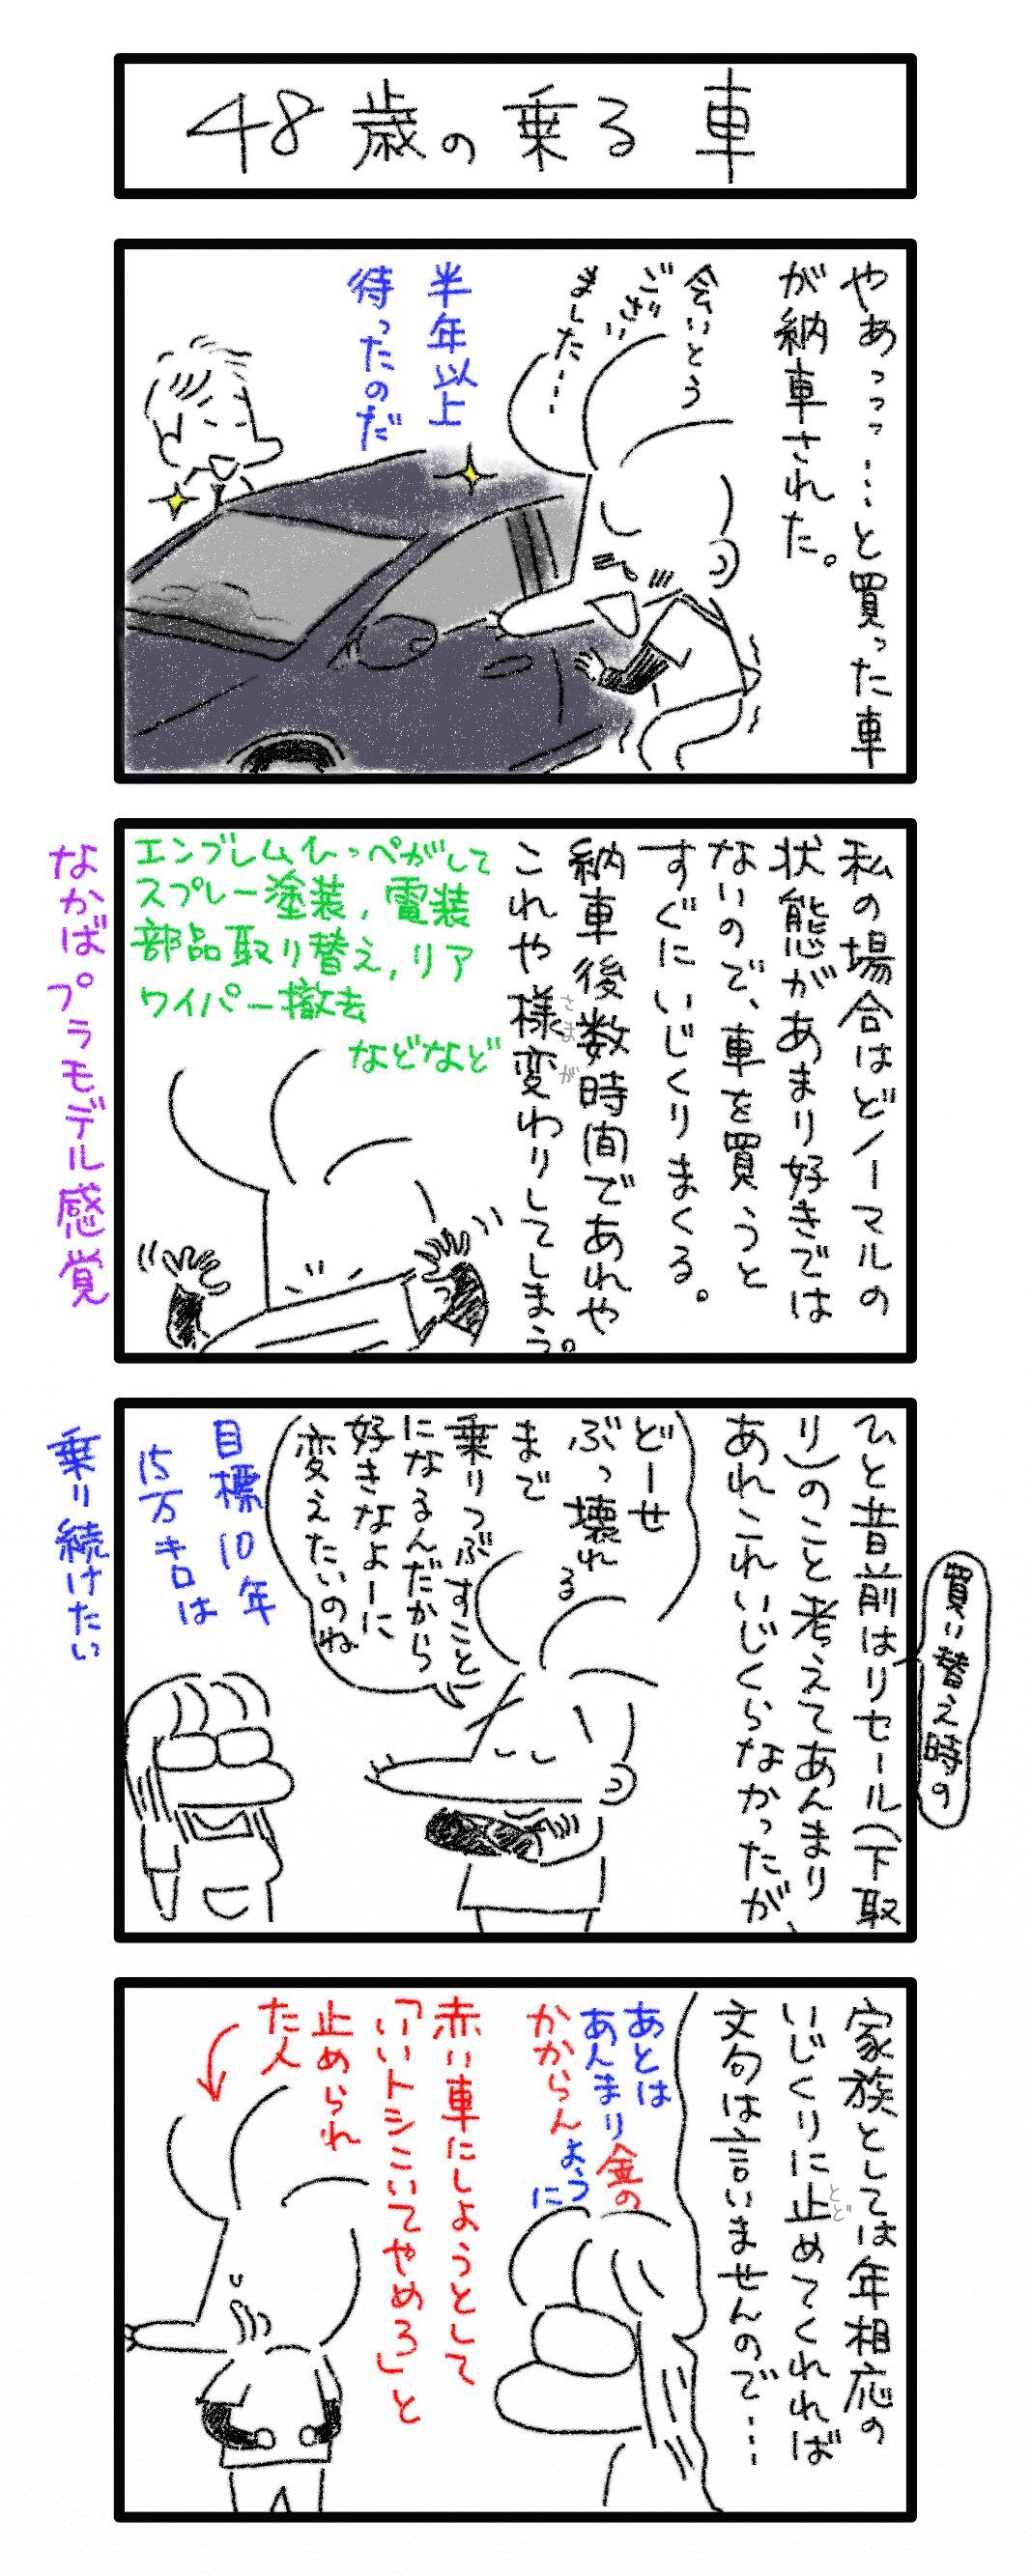 48歳の乗る車
やあっっ…と買った車
が納車された。
会いとう
ござい
ました…
半年以上
待ったのだ
私の場合はどノーマルの
状態があまり好きでは
ないので、車を買うと
すぐにいじくりまくる。
納車後数時間であれや
これや様変わりしてしまう。
さまが
エンブレムひっぺがして
スプレー塗装,電装
部品取り替え,リア
ワイパー撤去
などなど
なかばプラモデル感覚
ひと昔前はリセール(下取
り)のこと考えてあんまり
あれこれいじくらなかったが、
買い替え時の
どーせ
ぶっ壊れる
まで
乗りつぶすこと
になるんだから
好きなよーに
変えたいのね
目標10年
15万キロは
乗り続けたい
家族としては年相応の
いじくりに止めてくれれば
とど
文句は言いませんので…
あとは
あんまり金の
かからんように
赤い車にしようとして
「いいトシこいてやめろ」と
止められ
た人